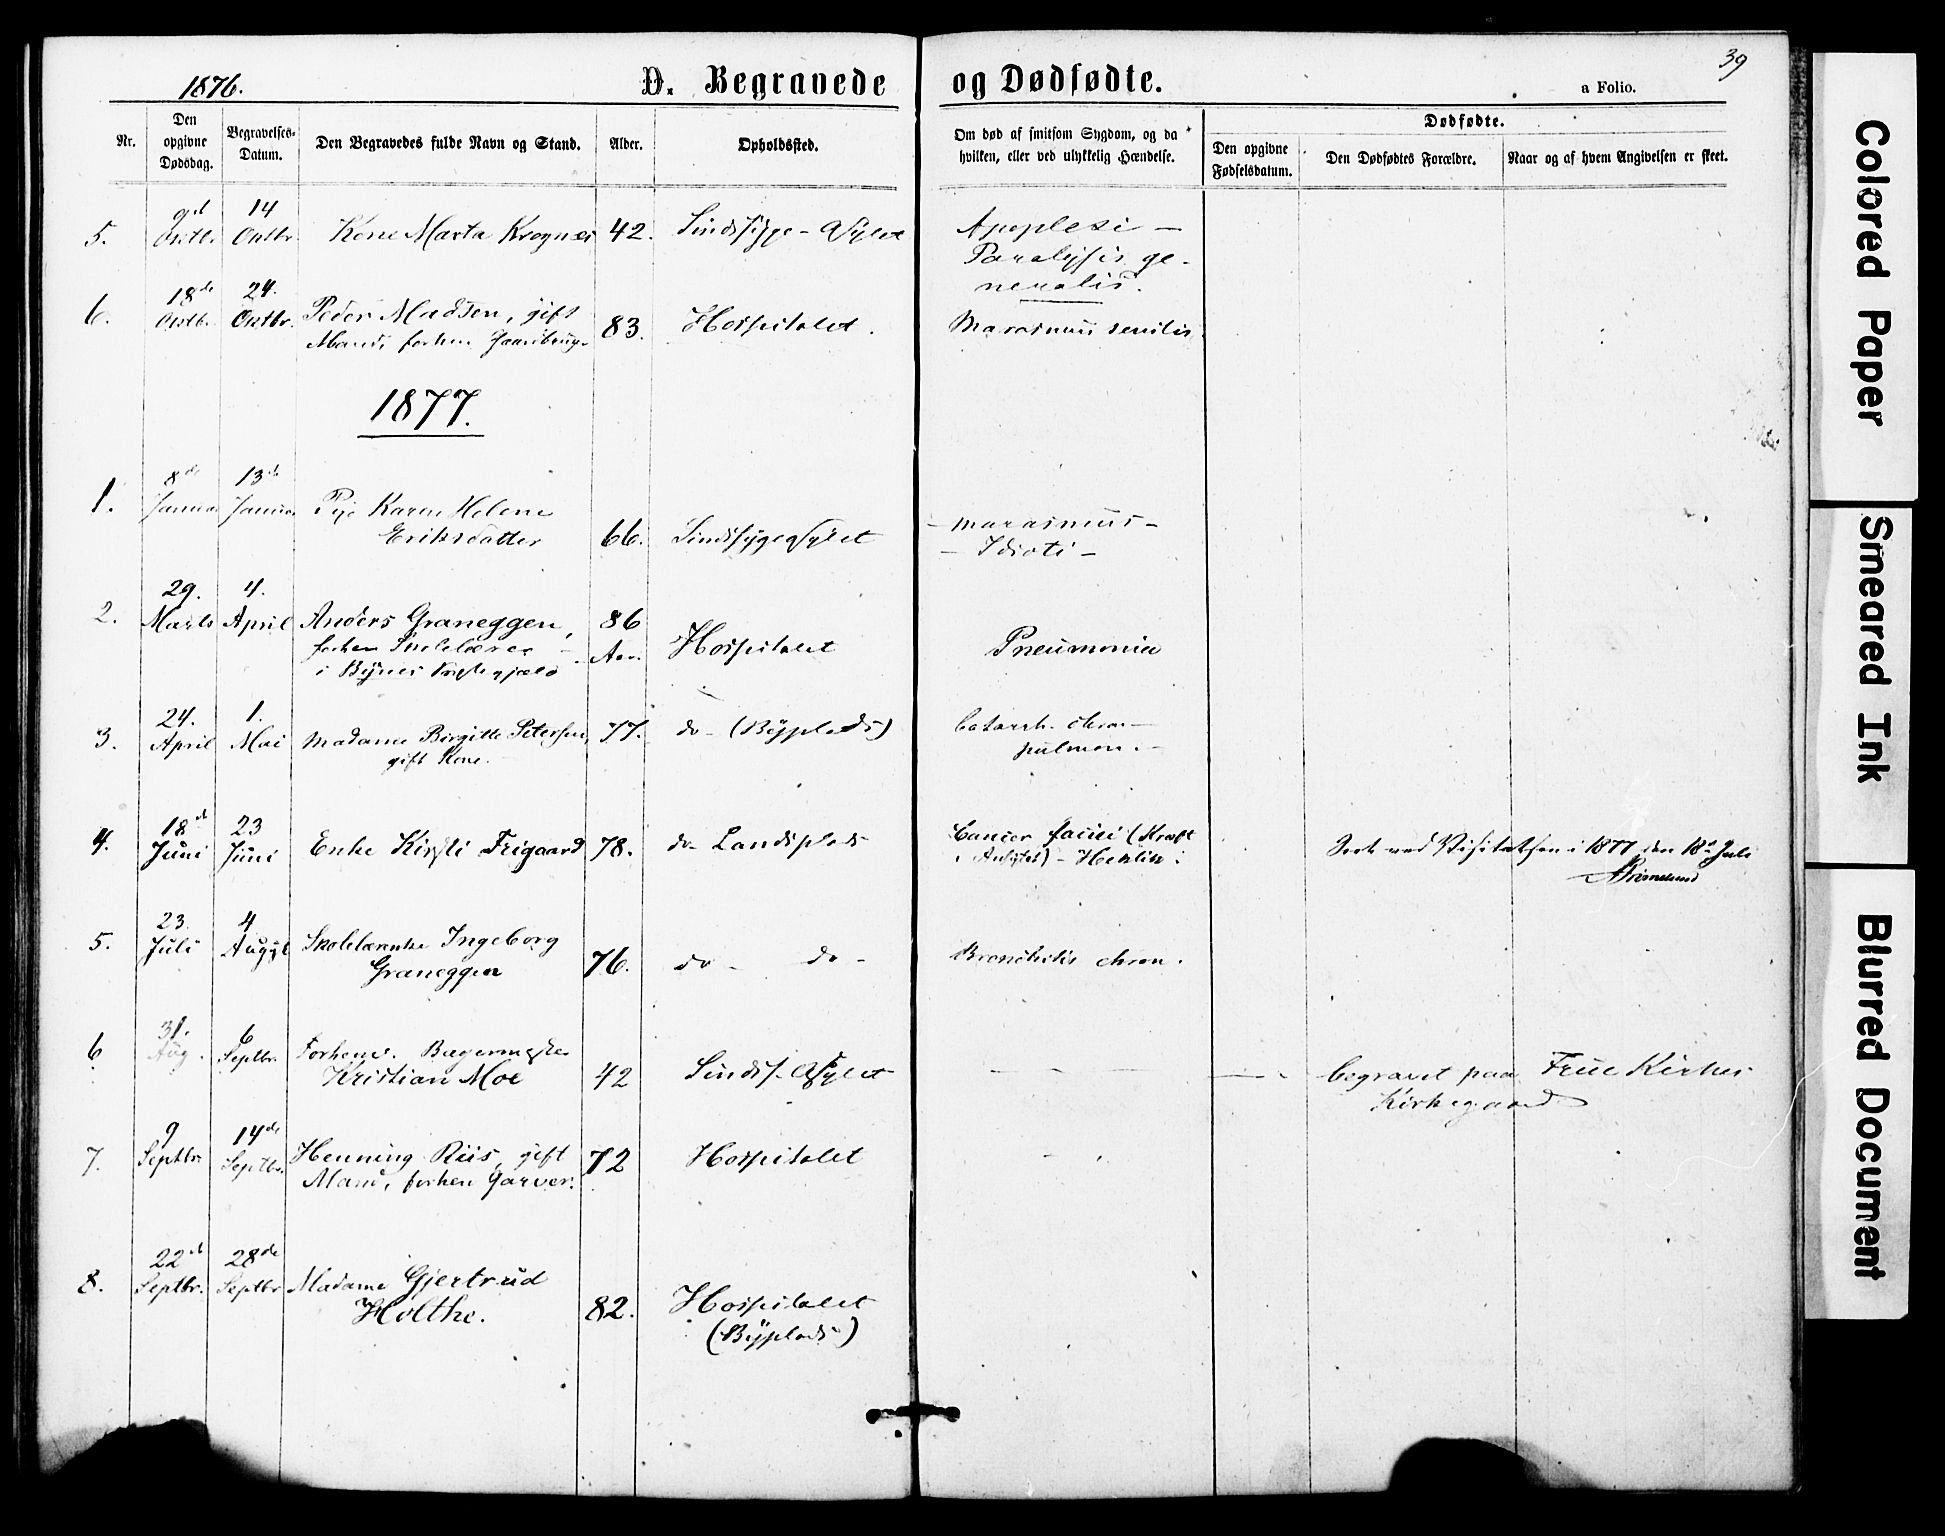 1876.
D. Begravede og Dødfødte.
39
a Folio.
Nr.
Den opgivne Dødsdag.
Begravelses-Datum.
Den Begravedes fulde Navn og Stand.
Alder.
Opholdssted.
Om død af smitsom Sygdom, og da
hvilken, eller ved ulykkelig Hændelse.
Dødfødte.
Den opgivne
Fødselsdatum.
Den Dødfødtes Forældre.
Naar og af hvem Angivelsen er skeet.
9de 14
5. Octbr. Octbr. Kone Marta Krognes 42. Sindssyge-Asylet Apoplexi –
Paralysis ge-
neralis.
18de 24.
6. Octb. Octbr. Peder Madsen, gift 83. Hospitalet. Marasmus senilis.
Mand, forhen Gaardbrug.
1877.
8de 13de
1. Januar Januar Pige Karen Helene
Eriksdatter 66. Sindssygeasylet – Marasmus –
– Idioti –
29. 4.
2. Marts April Anders Graneggen, 86
forhen Skolelærer Aar. Hospitalet Pneumonia
i Bynes Præstegjæld
24. 1.
3. April Mai Madame Birgitte Petersen, 77. do – (Byplads) Catarrh. chron –
gift Kone. pulmon. –
18de 23
4. Juni Juni Enke Kirsti Frigaard 78. do – Landsplads Cancer faciei (Kræft
i Ansigtet) – Hektik.
Seet ved Visitatsen i 1877 den 18de Juli
23. 4
5. Juli August Skolelærenke Ingeborg
Graneggen 76. do – do – Bronchitis chron.
31. 6
6 Aug. Septbr. Forhenv. Bagermester
Kristian Moe 42 Sindss. Asylet – – – – begravet paa Frue Kirkes
Kirkegaard
9 14de
7. Septbr. Septbr. Henning Riis, gift 72 Hospitalet
Mand, forhen Garver.
22de 28de
8. Septbr. Septbr Madame Gjertrud
Holthe. 82. Hospitalet
(Byplads)
Colored Paper
Smeared Ink
Blurred Document